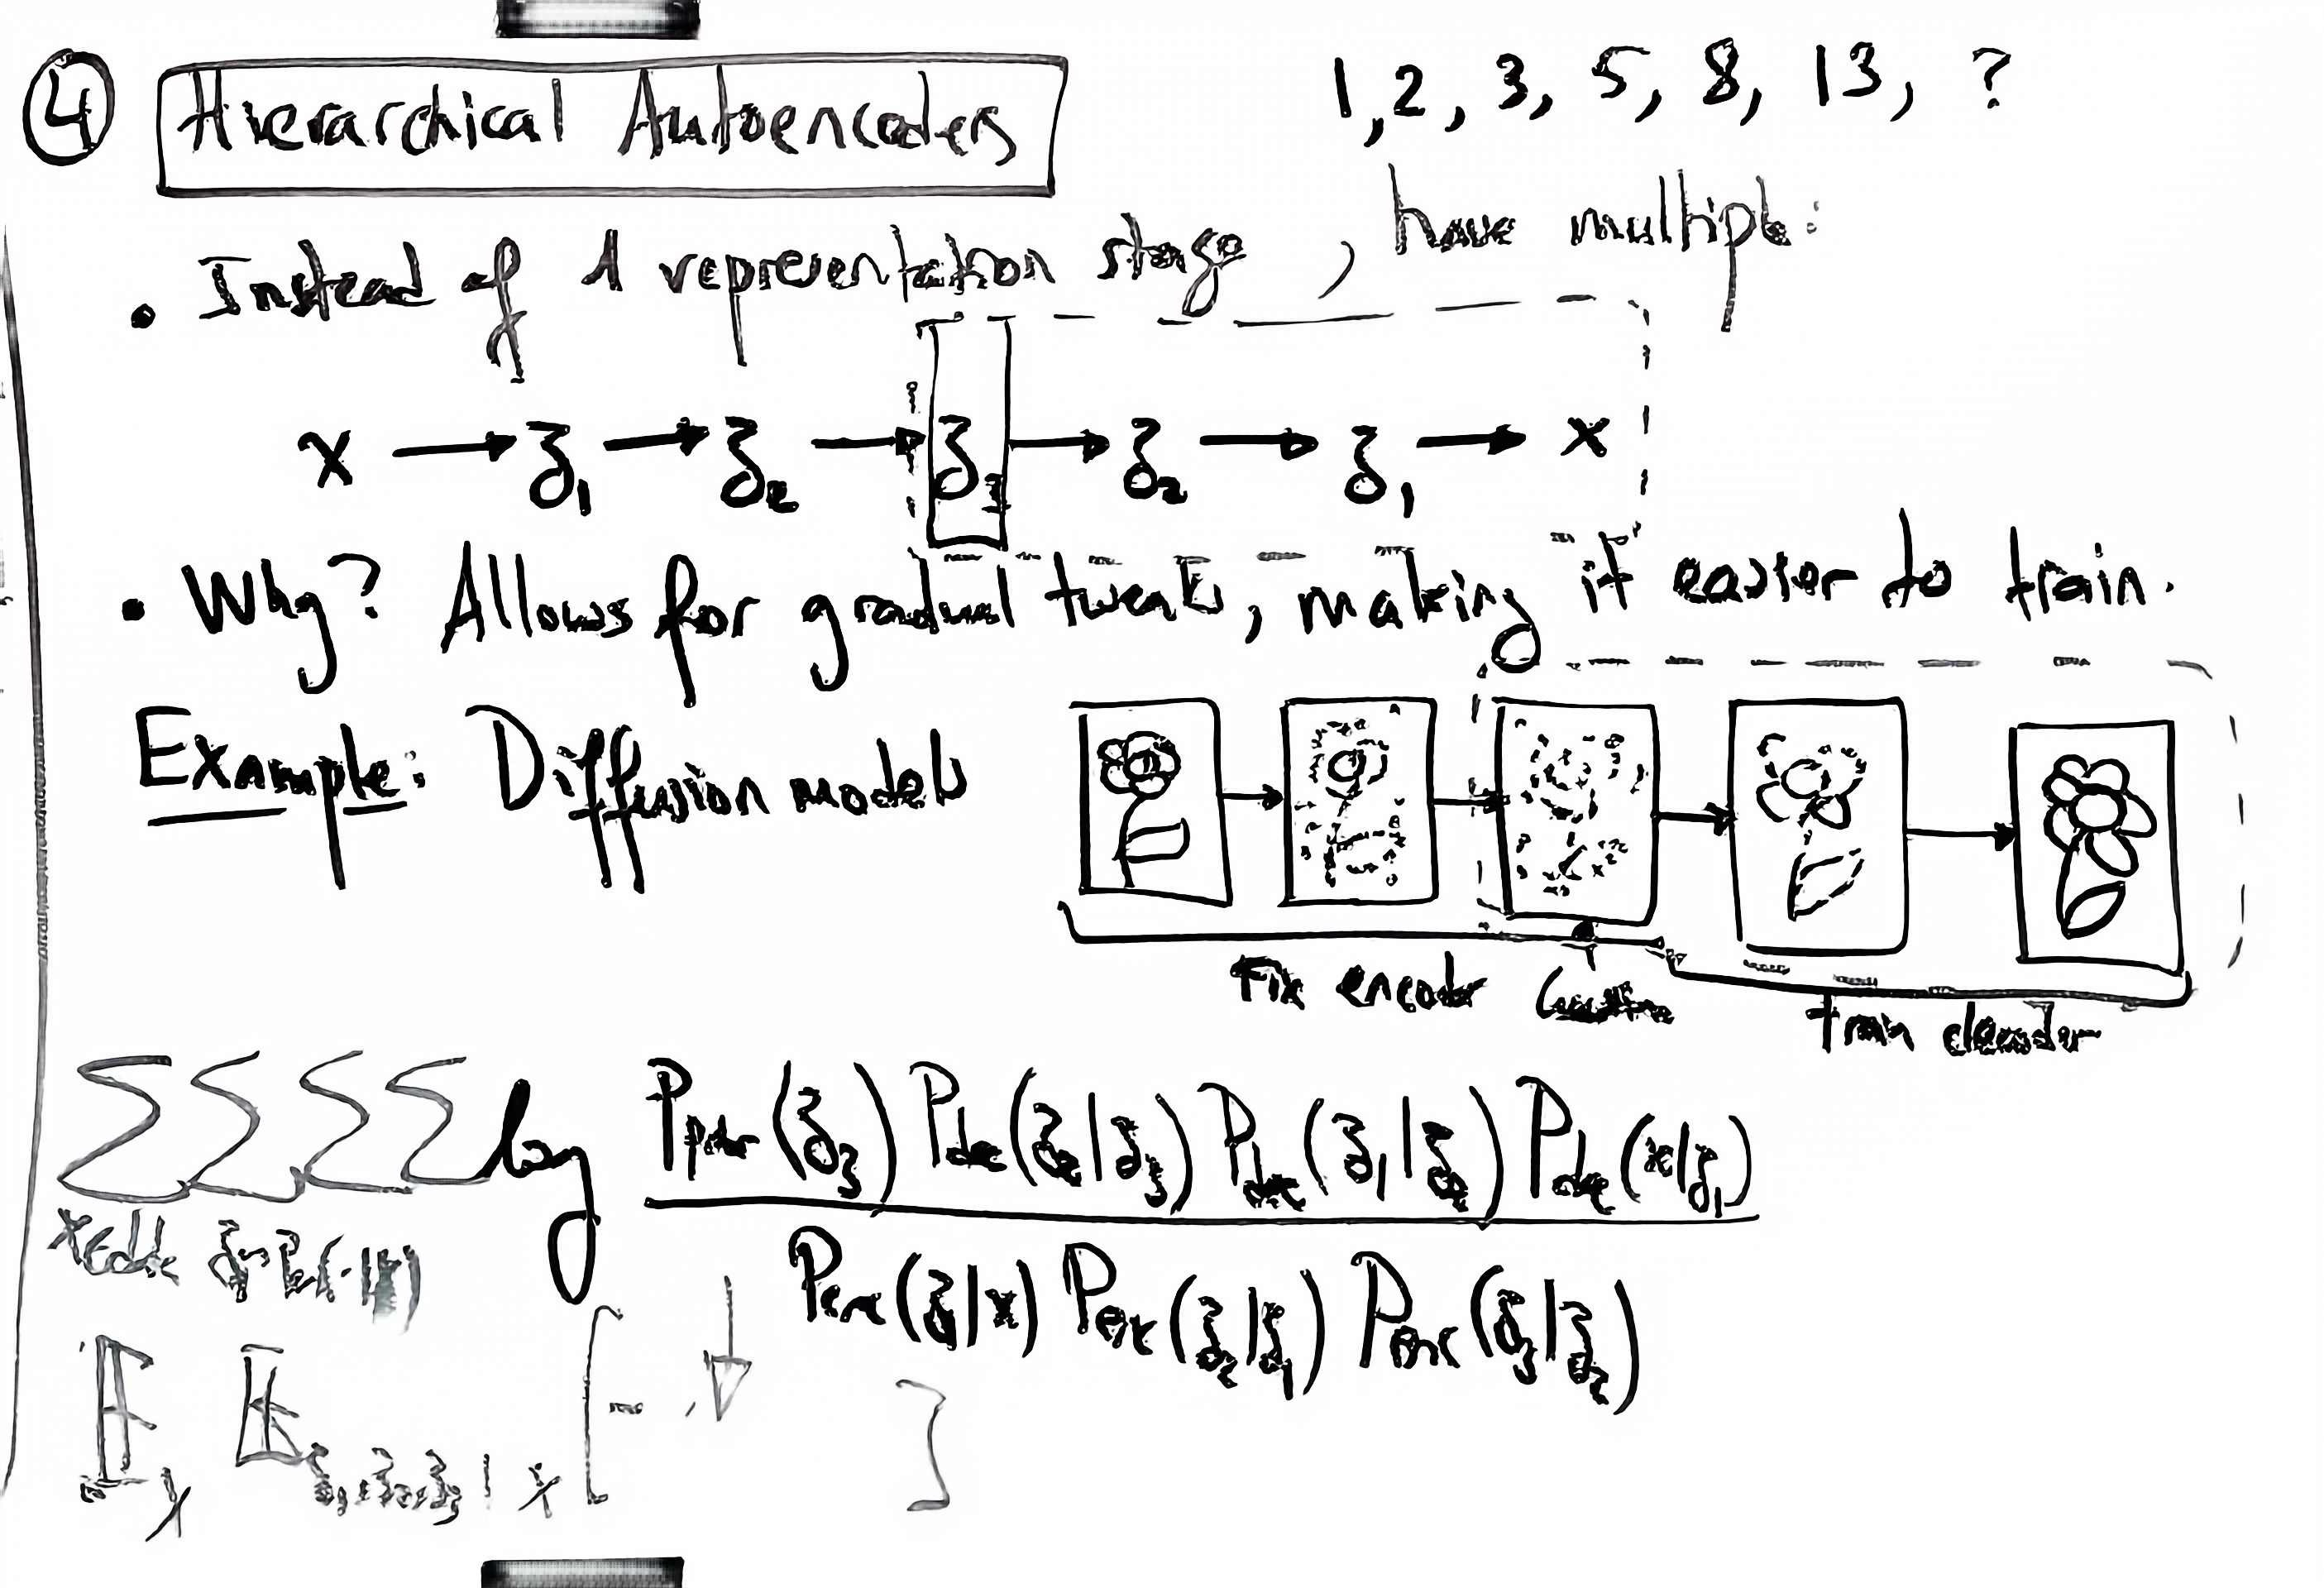 ④ Hierarchical Autoencoders
1, 2, 3, 5, 8, 13, ?
• Instead of 1 representation stage, have multiple:
x → z₁ → z₂ → z₃ → z₂ → z₁ → x
• Why? Allows for gradual tweaks, making it easier to train.
Example: Diffusion models
Fix encoder
train decoder
Σ Σ Σ Σ log P_prior(z₃) P_dec(z₂|z₃) P_dec(z₁|z₂) P_dec(x|z₁)
P_enc(z₁|x) P_enc(z₂|z₁) P_enc(z₃|z₂)
E_x E_z₁,z₂,z₃|x [ ]